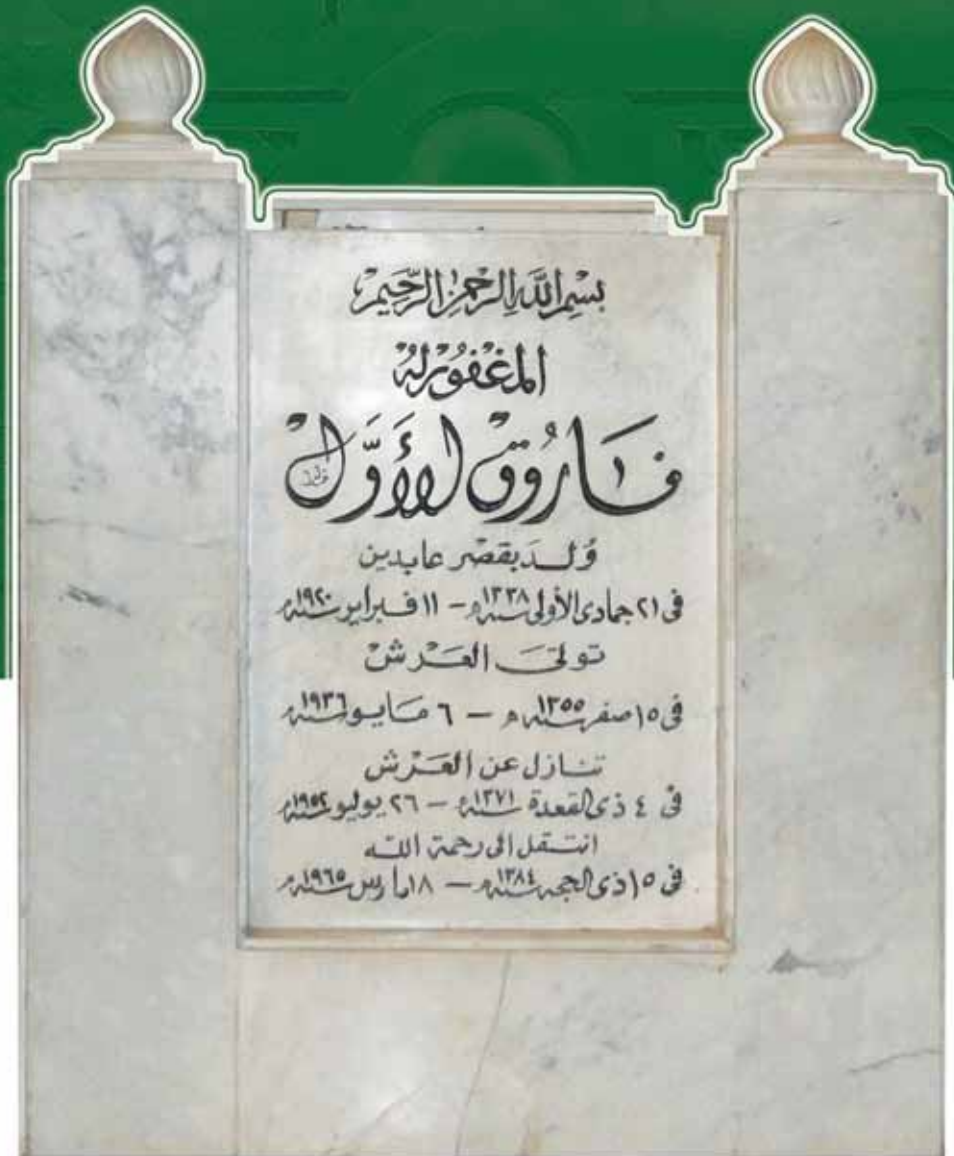 بسم الله الرحمن الرحيم
المغفور له
فاروق الأول
وُلد بقصر عابدين
فى ٢١ جمادى الأولى سنة ١٣٣٨ھ - ١١ فبراير سنة ١٩٢٠م
تولى العرش
فى ١٥ صفر سنة ١٣٥٥ھ - ٦ مايو سنة ١٩٣٦م
تنازل عن العرش
فى ٤ ذى القعدة سنة ١٣٧١ھ - ٢٦ يوليو سنة ١٩٥٢م
انتقل الى رحمة الله
فى ١٥ ذى الحجه سنة ١٣٨٤ھ - ١٨ مارس سنة ١٩٦٥م